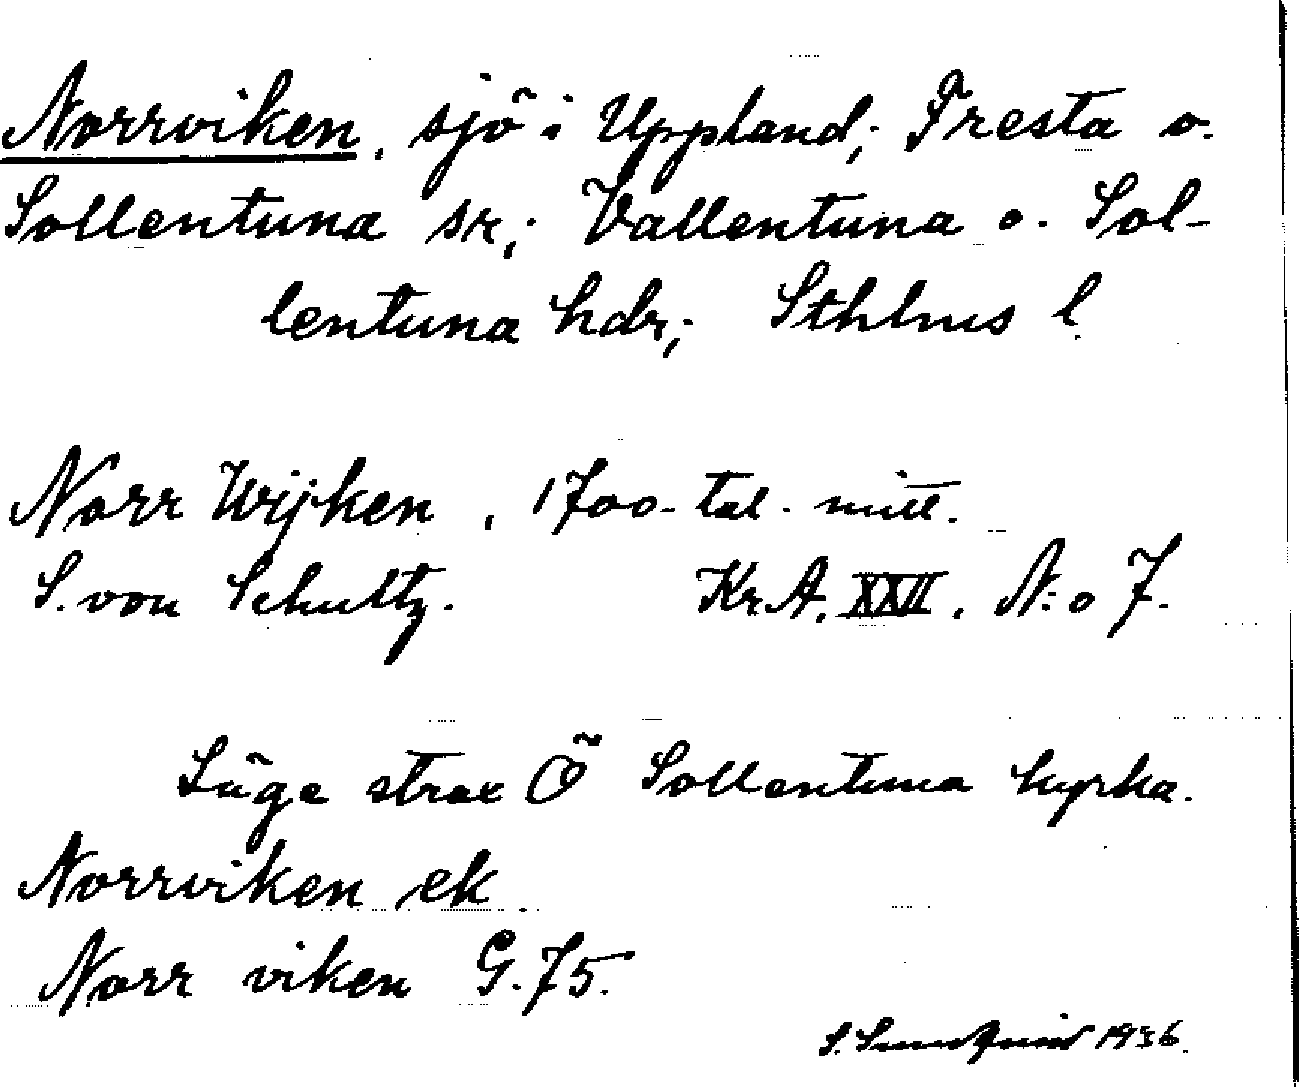 Norrviken, sjö i Uppland; Fresta o.
Sollentuna sr,; Vallentuna o. Sol-
lentuna hdr,; Sthlms l.
Norr Wijken, 1700-tal. mitt.
S. von Schultz. Kr.A. XXII. N:o 7.
Läge strax Ö Sollentuna kyrka.
Norrviken ek
Norr viken G.75.
S. 1936.